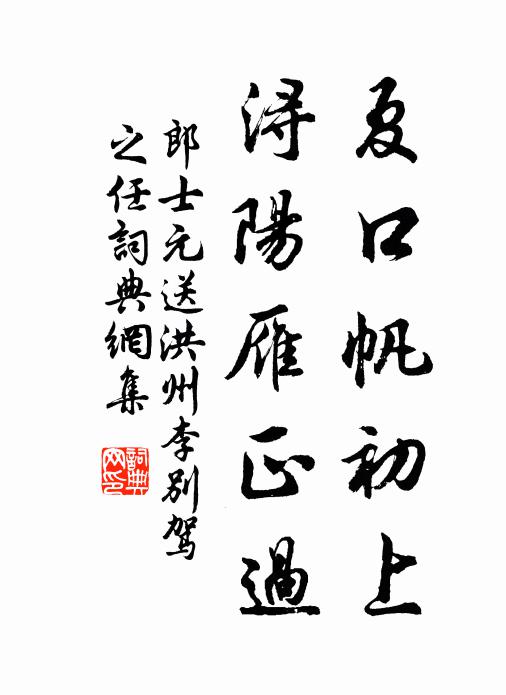 夏口帆初上
浔陽雁正過
郎士元送洪州李别駕
之任詞典網集
詞典网印